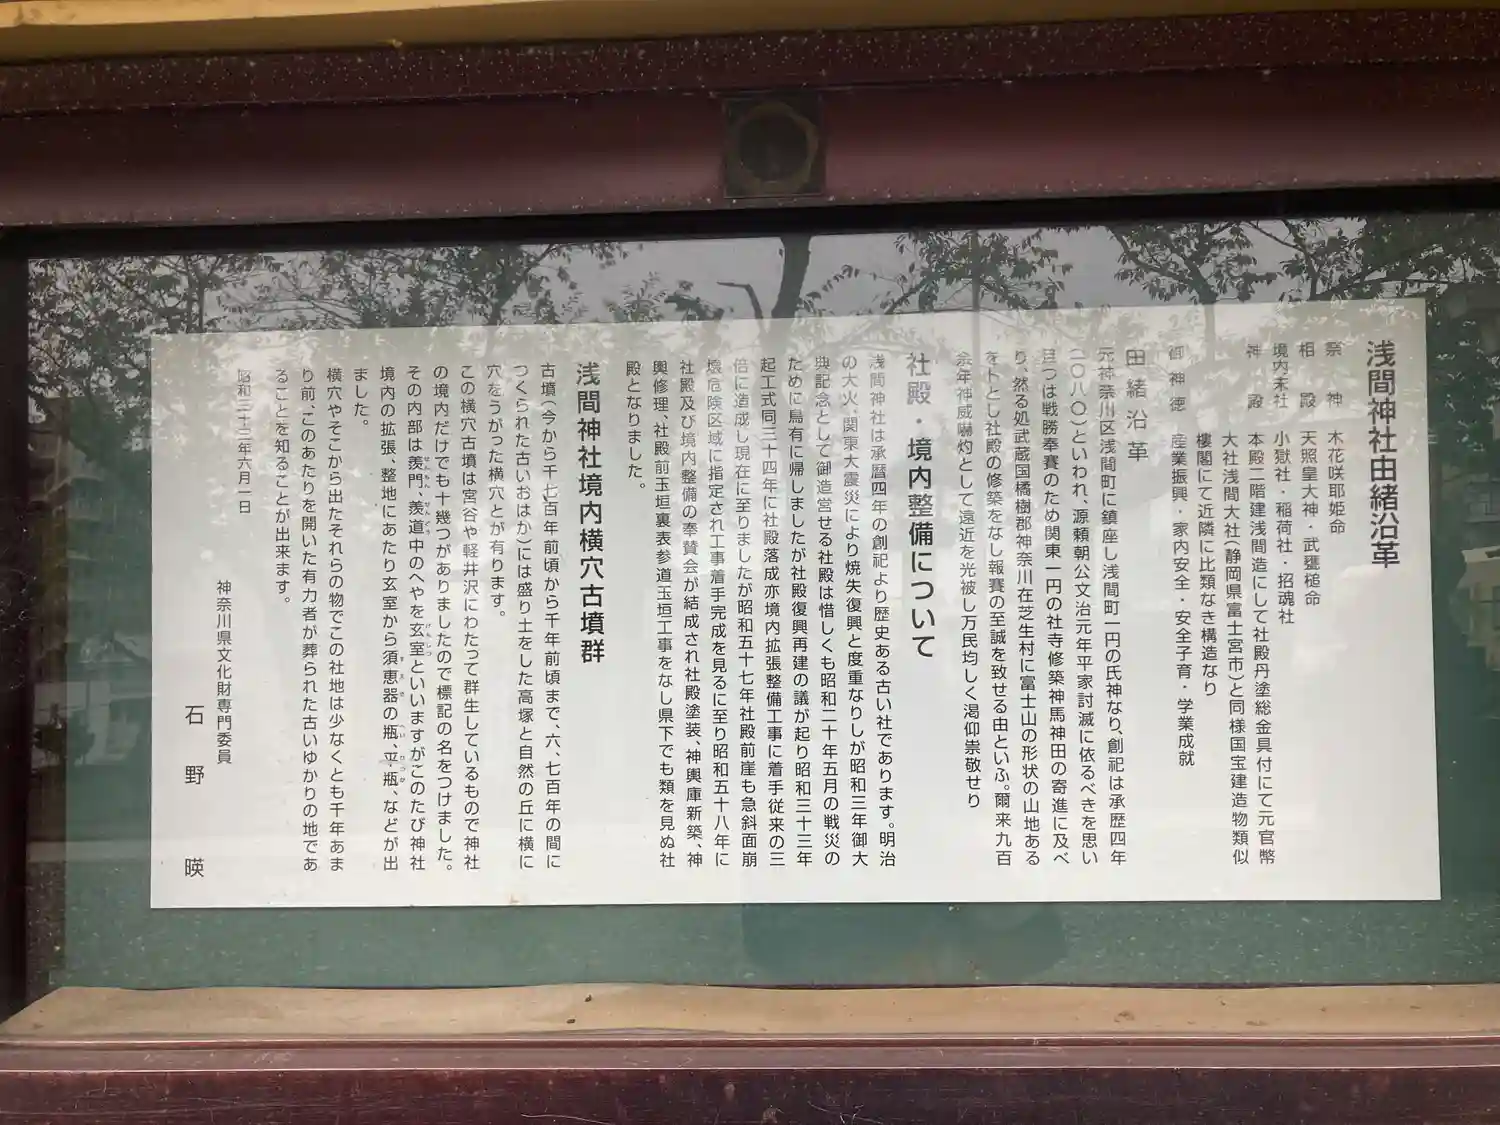 浅間神社由緒沿革
祭神　木花咲耶姫命
相殿　天照皇大神・武甕槌命
境内末社　小嶽社・稲荷社・招魂社
神殿　本殿二階建浅間造にして社殿丹塗総金具付にて元官幣
大社浅間大社（静岡県富士宮市）と同様国宝建造物類似
樓閣にて近隣に比類なき構造なり
御神徳　産業振興・家内安全・安全子育・学業成就
由緒沿革
元神奈川区浅間町に鎮座し浅間町一円の氏神なり、創祀は承歴四年
（二〇八〇）といわれ、源頼朝公文治元年平家討滅に依るべきを思い
且つは戦勝奉賽のため関東一円の社寺修築神馬神田の寄進に及べ
り、然る処武蔵国橘樹郡神奈川在芝生村に富士山の形状の山地ある
をトとし社殿の修築をなし報賽の至誠を致せる由といふ。爾来九百
余年神威嚇灼として遠近を光被し万民均しく渇仰崇敬せり
社殿・境内整備について
浅間神社は承暦四年の創祀より歴史ある古い社であります。明治
の大火、関東大震災により焼失復興と度重なりしが昭和三年御大
典記念として御造営せる社殿は惜しくも昭和二十年五月の戦災の
ために烏有に帰しましたが社殿復興再建の議が起り昭和三十三年
起工式同三十四年に社殿落成亦境内拡張整備工事に着手従来の三
倍に造成し現在に至りましたが昭和五十七年社殿前崖も急斜面崩
壊危険区域に指定され工事着手完成を見るに至り昭和五十八年に
社殿及び境内整備の奉賛会が結成され社殿塗装、神輿庫新築、神
輿修理、社殿前玉垣裏表参道玉垣工事をなし県下でも類を見ぬ社
殿となりました。
浅間神社境内横穴古墳群
古墳（今から千七百年前頃から千年前頃まで、六、七百年の間に
つくられた古いおはか）には盛り土をした高塚と自然の丘に横に
穴をうがった横穴とが有ります。
この横穴古墳は宮谷や軽井沢にわたって群生しているもので神社
の境内だけでも十幾つがありましたので標記の名をつけました。
その内部は羨門、羨道中のへやを玄室といいますがこのたび神社
境内の拡張、整地にあたり玄室から須恵器の瓶、平瓶、などが出
ました。
横穴やそこから出たそれらの物でこの社地は少なくとも千年あま
り前、このあたりを開いた有力者が葬られた古いゆかりの地であ
ることを知ることが出来ます。
昭和三十三年六月一日
神奈川県文化財専門委員
石野瑛